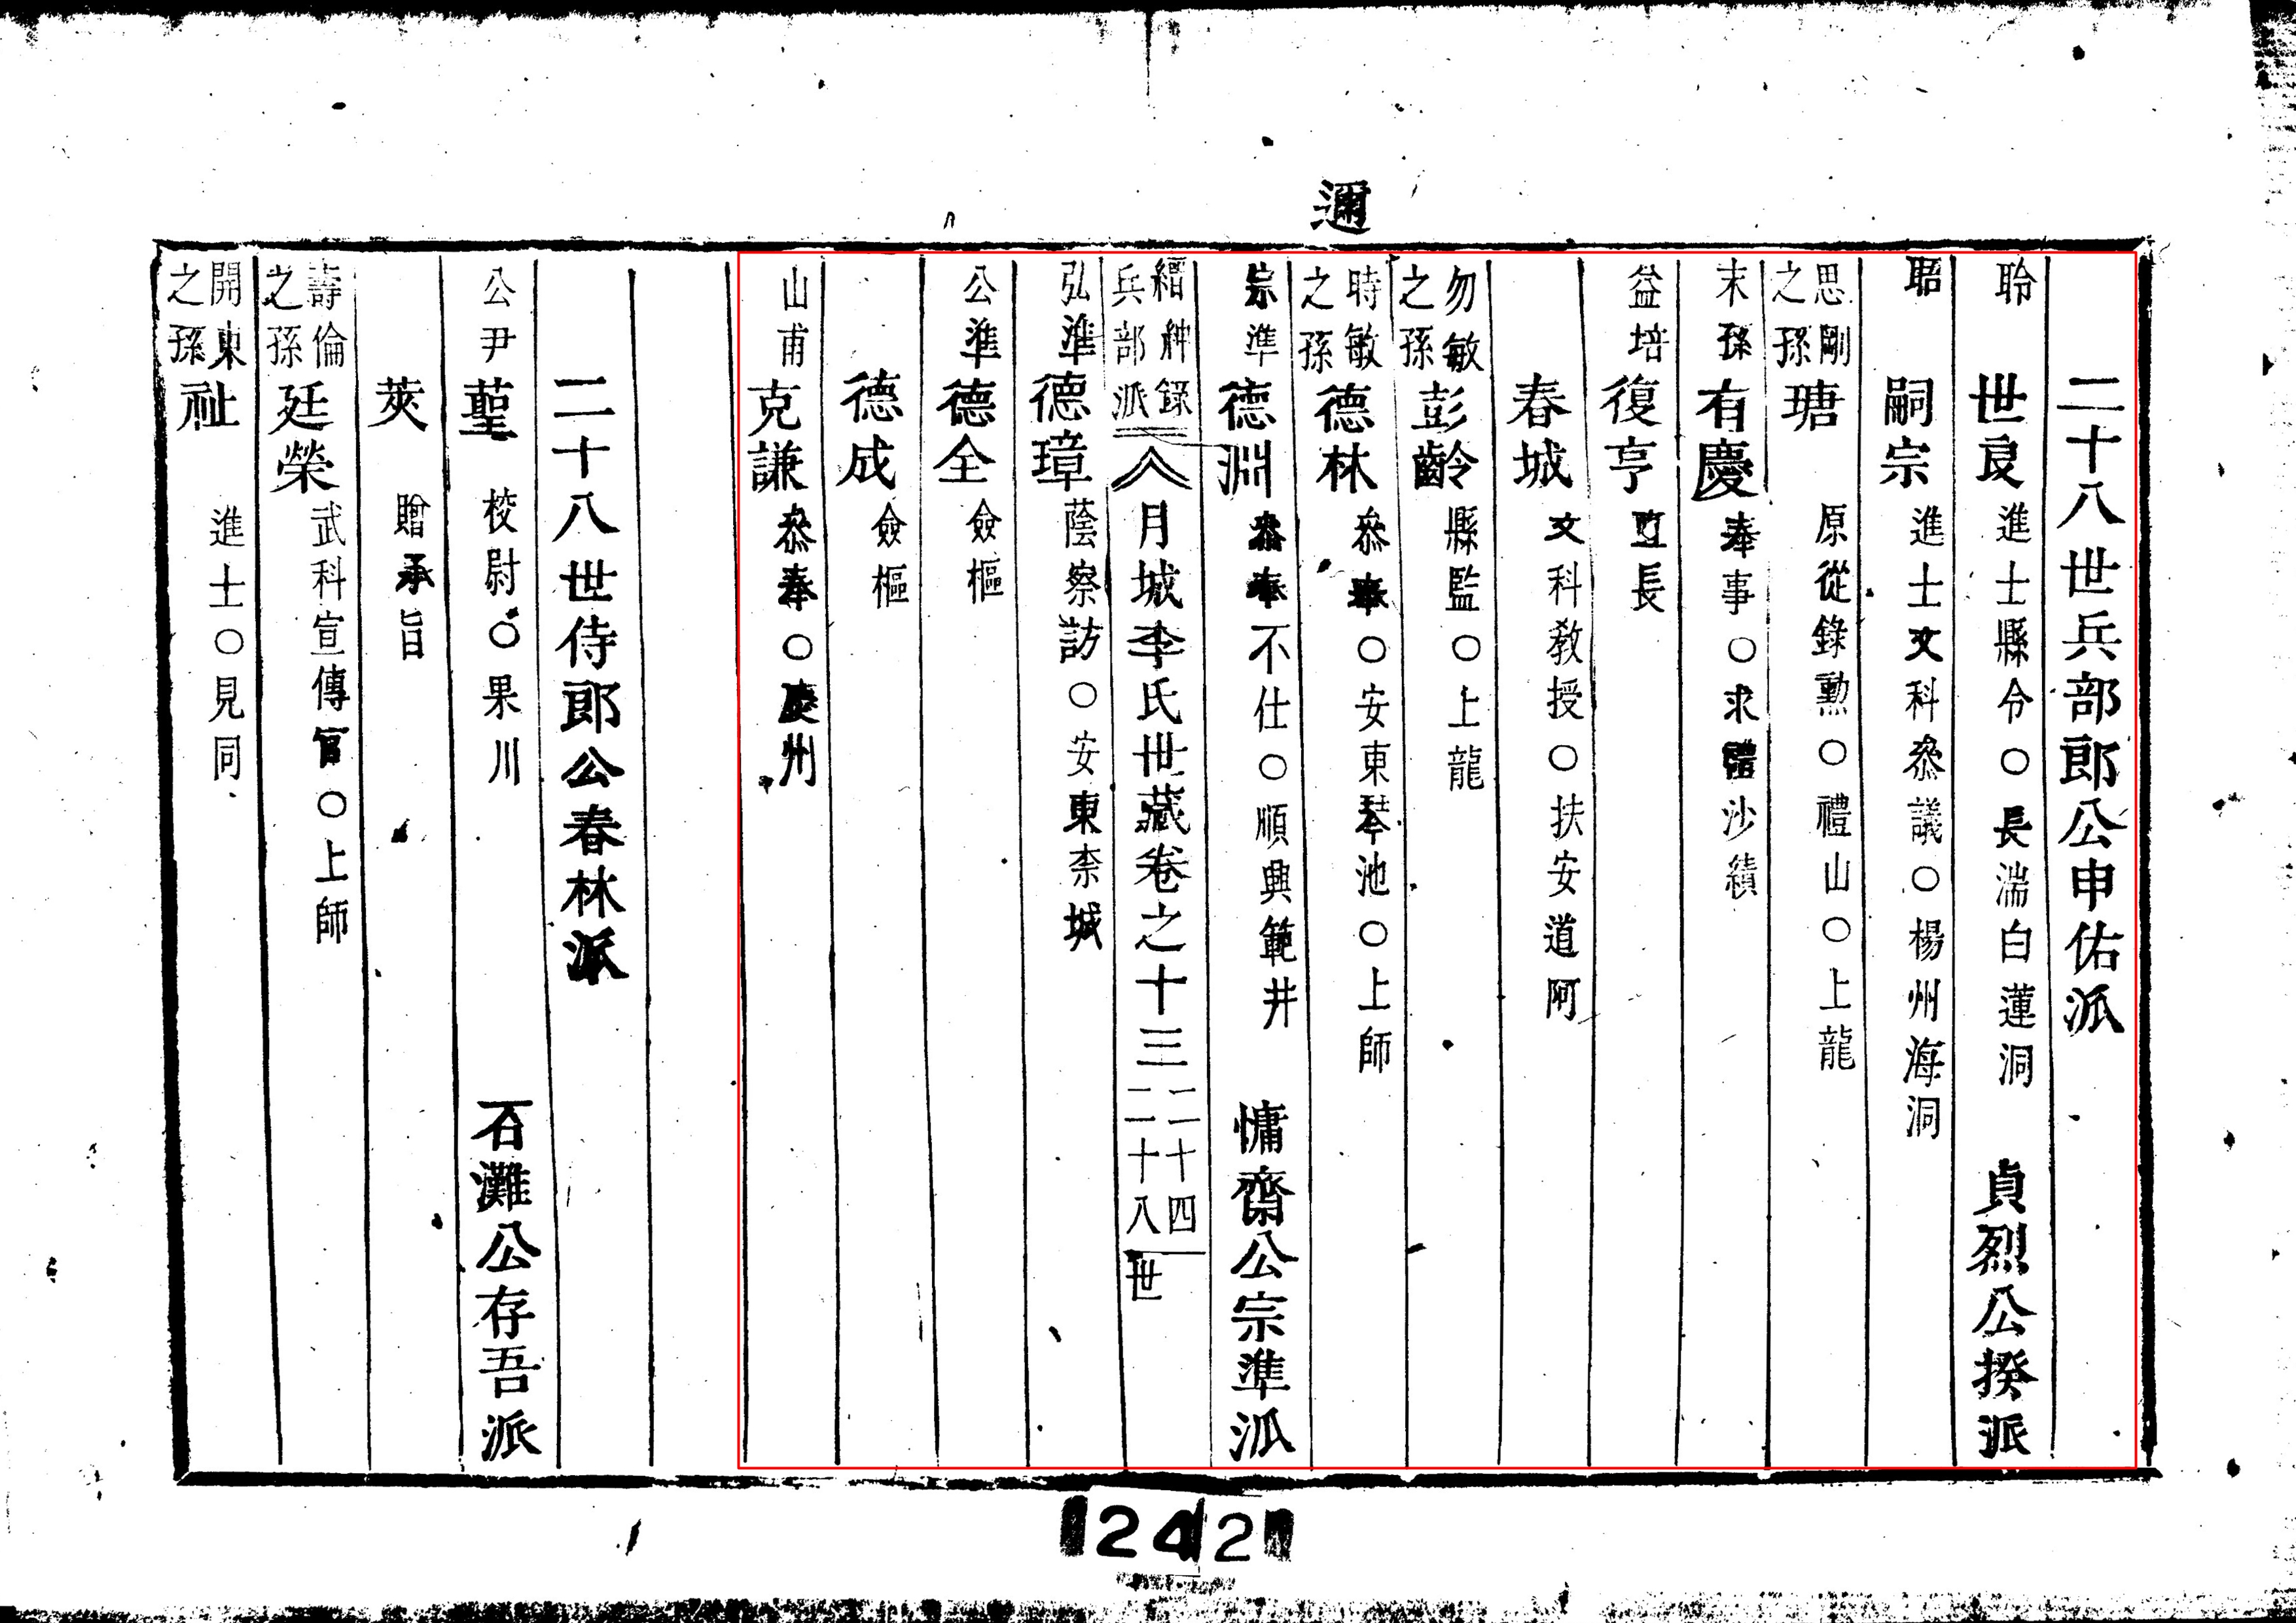 邇
二十八世兵部郎公申佑派
聆 世良 進士縣令○長湍白蓮洞 貞烈公揆派
聑 嗣宗 進士文科叅議○楊州海洞
思剛之孫 瑭 原從錄勳○禮山○上龍
末孫 有慶 奉事○求禮沙績
益培 復亨 直長
春城 文科敎授○扶安道阿
勿敏之孫 彭齡 縣監○上龍
時敏之孫 德林 叅奉○安東琴池○上師
宗準 德淵 叅奉不仕○順興範井 慵齋公宗準派
縉紳錄兵部派 月城李氏世藏卷之十三 二十四 二十八世
弘準 德璋 蔭察訪○安東柰城
公準 德全 僉樞
德成 僉樞
山甫 克謙 叅奉○慶州
二十八世侍郎公春林派
公尹 䔰 校尉○果川 石灘公存吾派
莢 贈承旨
壽倫之孫 廷榮 武科宣傳官○上師
開東之孫 祉 進士○見同
2421